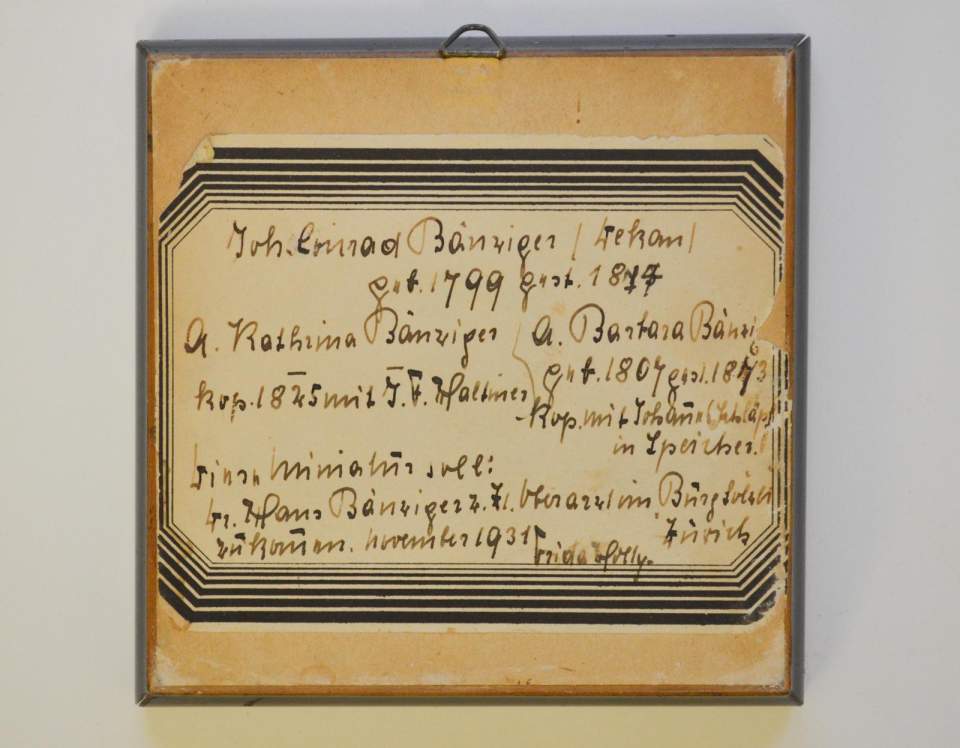 Joh. Conrad Bänziger (Dekan)
geb. 1799 gest. 1877
A. Kathrina Bänziger
kop. 1825 mit J. F. Haltiner
A. Barbara Bänzi
geb. 1807 gest. 1873
kop. mit Johann Schläpf
in Speicher.
Diese Miniatur soll:
Dr. Hans Bänziger z. Zt. Oberarzt im Burghölzli
Zürich
zukommen. November 1931 Frida